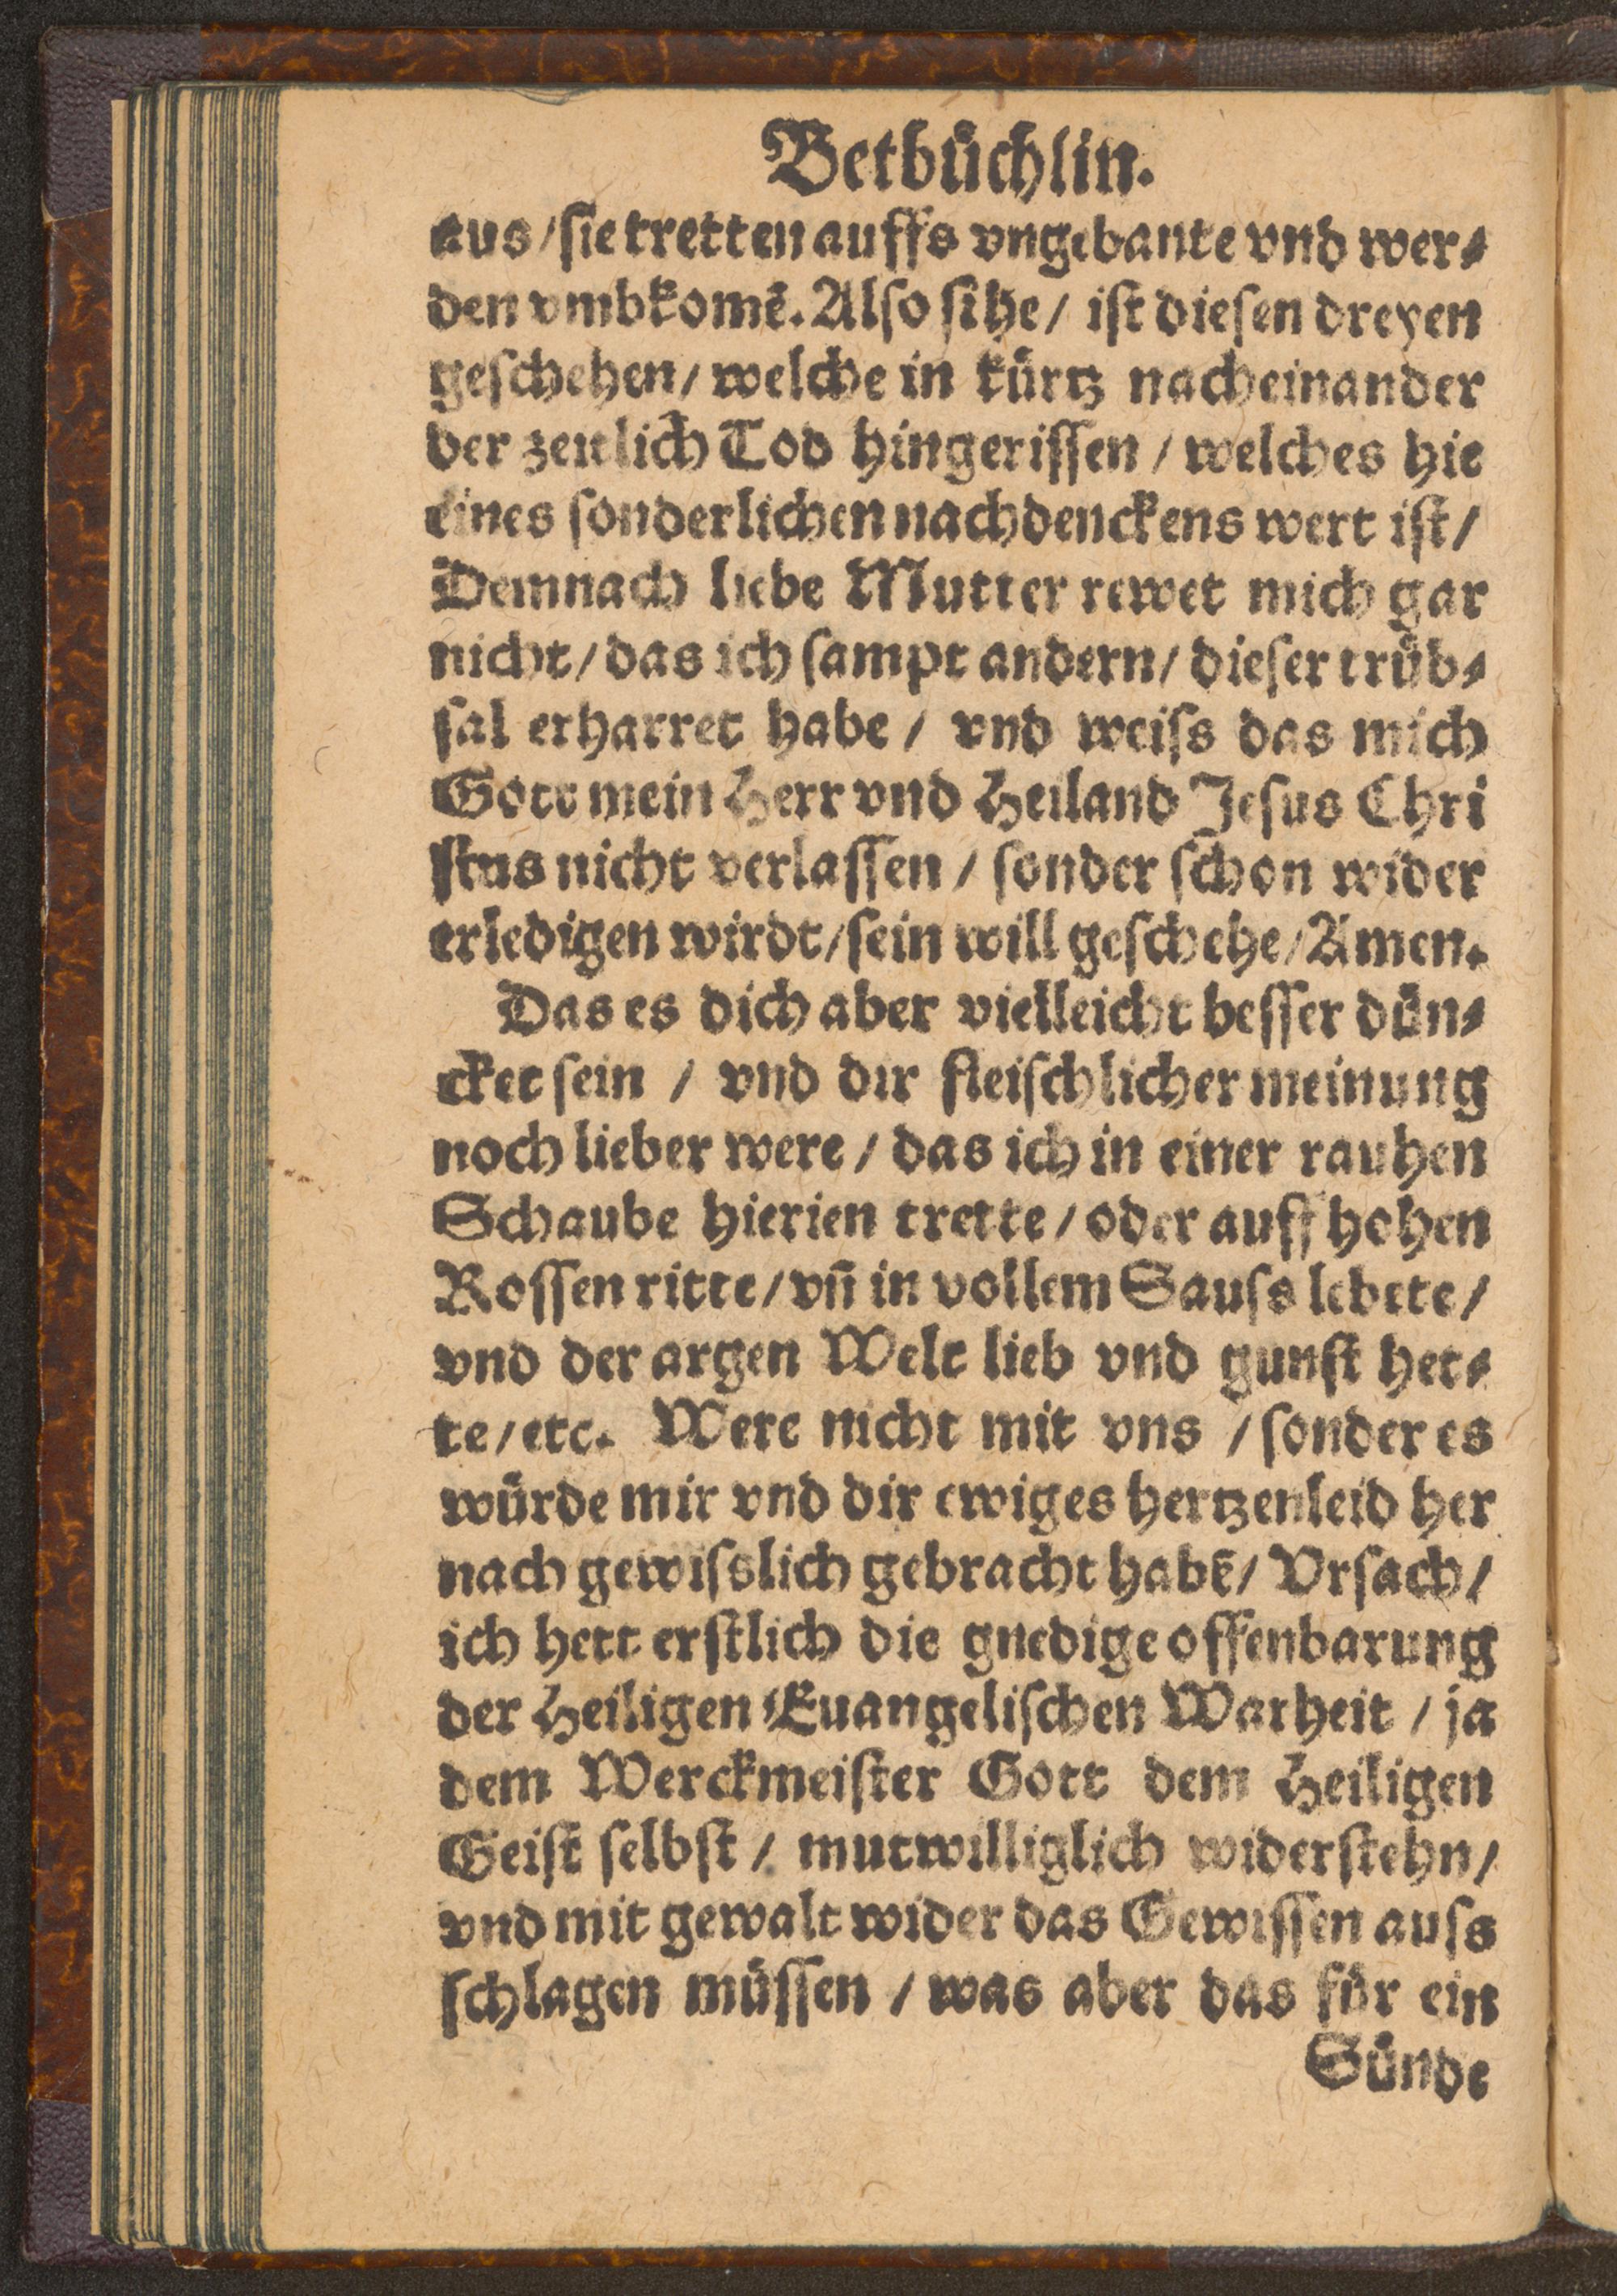 Betbüchlin.
aus / sie tretten auffs vngebante vnd wer⸗
den vmbkomē. Also sihe / ist diesen dreyen
geschehen / welche in kürtz nacheinander
der zeitlich Tod hingerissen / welches hie
eines sonderlichen nachdenckens wert ist /
Demnach liebe Mutter rewet mich gar
nicht / das ich sampt andern / dieser trüb⸗
sal erharret habe / vnd weiss das mich
Gott mein Herr vnd Heiland Jesus Chri
stus nicht verlassen / sonder schon wider
erledigen wirdt / sein will geschehe / Amen.
Das es dich aber vielleicht besser dün⸗
cket sein / vnd dir fleischlicher meinung
noch lieber were / das ich in einer rauhen
Schaube hierien trette / oder auff hohen
Rossen ritte / vn̄ in vollem Sauss lebete /
vnd der argen Welt lieb vnd gunst het⸗
te / etc. Were nicht mit vns / sonder es
würde mir vnd dir ewiges hertzenleid her
nach gewisslich gebracht habē / Vrsach /
ich hett erstlich die gnedige offenbarung
der Heiligen Euangelischen Warheit / ja
dem Werckmeister Gott dem Heiligen
Geist selbst / mutwilliglich widerstehn /
vnd mit gewalt wider das Gewissen auss
schlagen müssen / was aber das für ein
Sünde